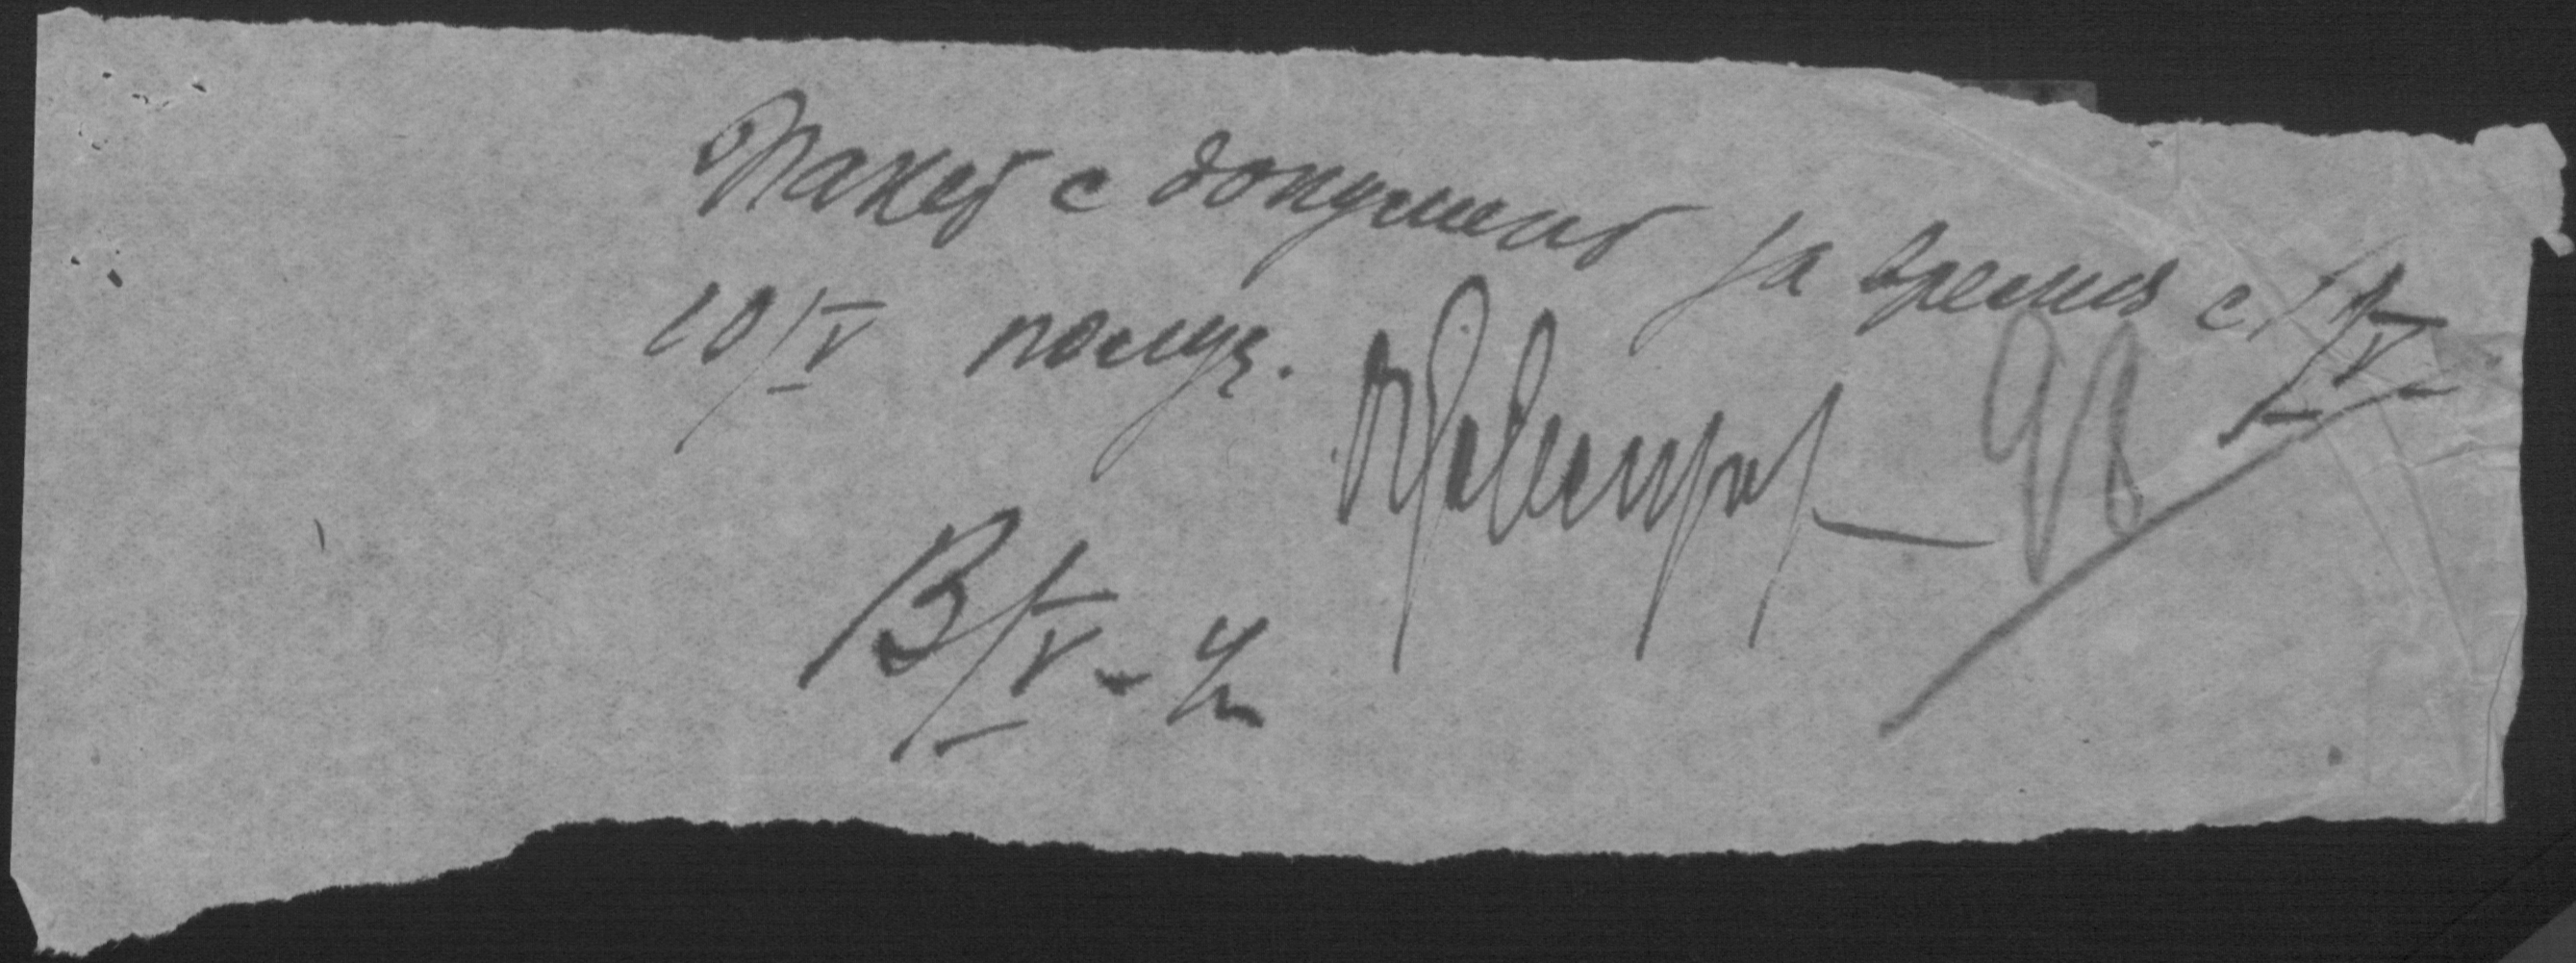 Пакет с документ за время с 1/V
10/V получ.
98
13/V - 4